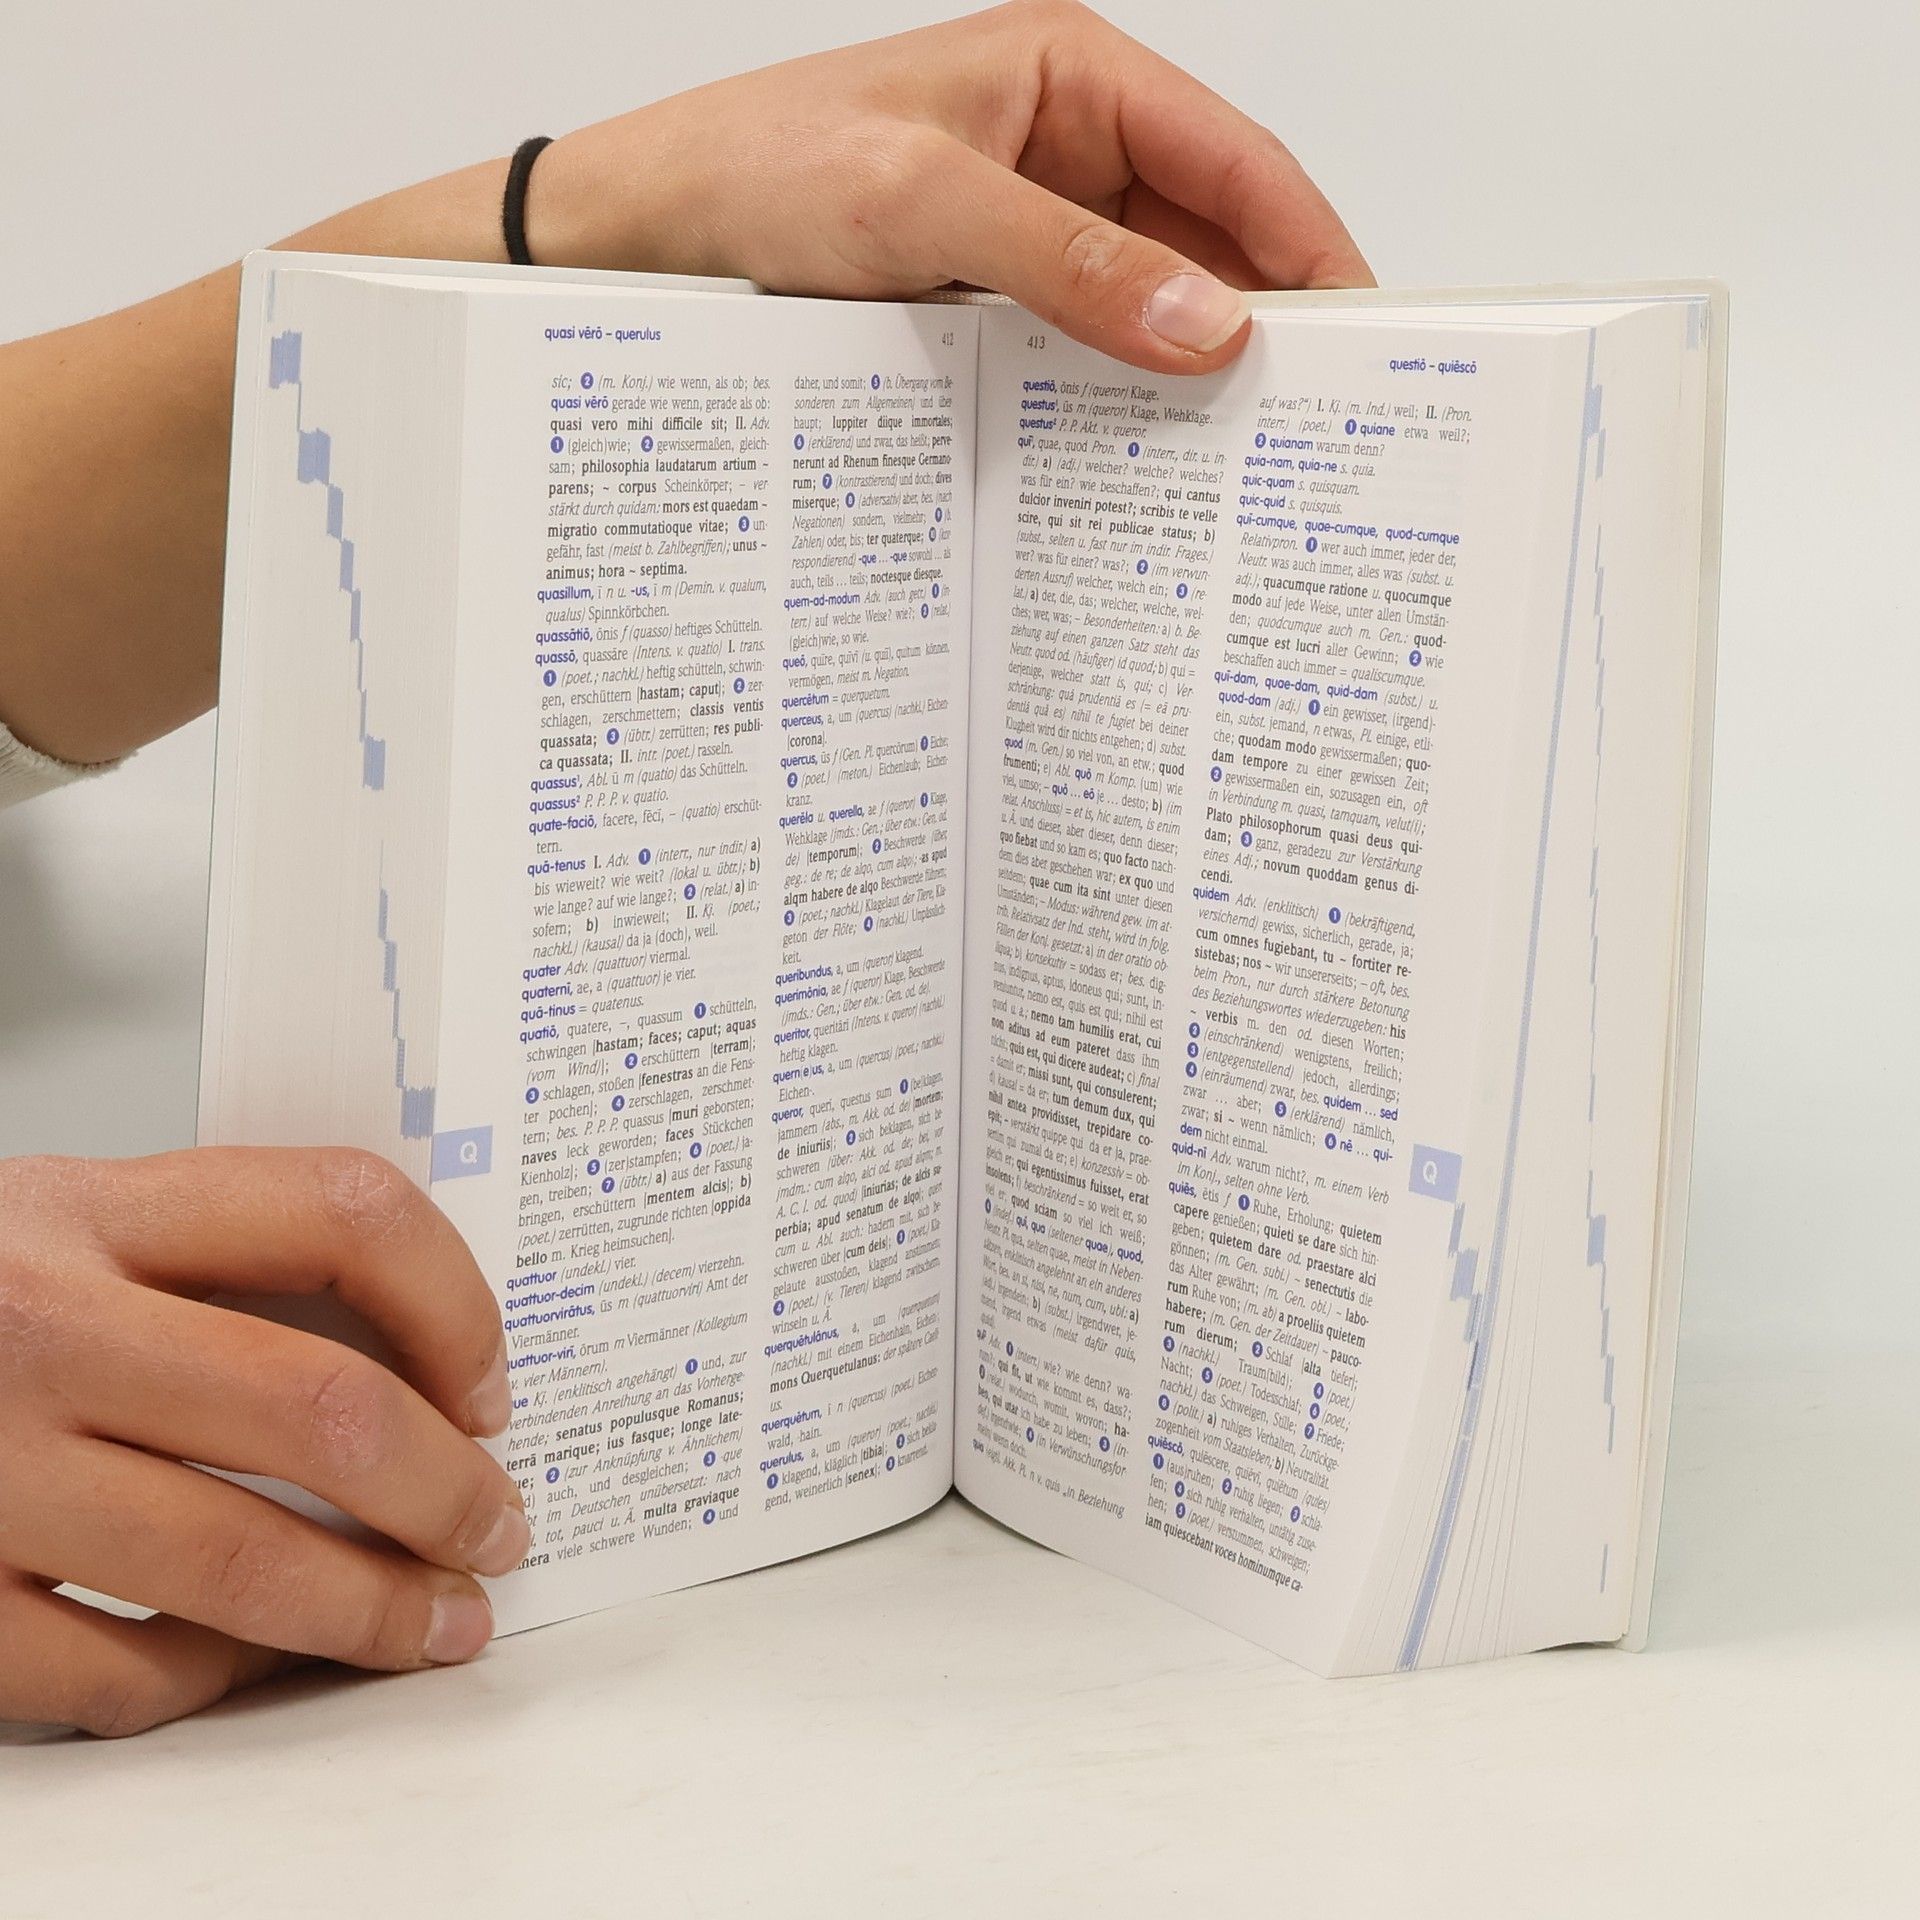 quasi vērō – querulus
412
sic; ❷ (m. Konj.) wie wenn, als ob; bes.
quasi vērō gerade wie wenn, gerade als ob:
quasi vero mihi difficile sit; II. Adv.
❶ (gleich)wie; ❷ gewissermaßen, gleich-
sam; philosophia laudatarum artium ~
parens; ~ corpus Scheinkörper; – ver-
stärkt durch quidam: mors est quaedam ~
migratio commutatioque vitae; ❸ un-
gefähr, fast (meist b. Zahlbegriffen); unus ~
animus; hora ~ septima.
quasillum, ī n u. -us, ī m (Demin. v. qualum,
qualus) Spinnkörbchen.
quassātiō, ōnis f (quasso) heftiges Schütteln.
quassō, quassāre (Intens. v. quatio) I. trans.
❶ (poet.; nachkl.) heftig schütteln, schwin-
gen, erschüttern [hastam; caput]; ❷ zer-
schlagen, zerschmettern; classis ventis
quassata; ❸ (übtr.) zerrütten; res publi-
ca quassata; II. intr. (poet.) rasseln.
quassus¹, Abl. ū m (quatio) das Schütteln.
quassus² P. P. P. v. quatio.
quate-faciō, facere, fēcī, – (quatio) erschüt-
tern.
quā-tenus I. Adv. ❶ (interr., nur indir.) a)
bis wieweit? wie weit? (lokal u. übtr.); b)
wie lange? auf wie lange?; ❷ (relat.) a) in-
sofern; b) inwieweit; II. Kj. (poet.;
nachkl.) (kausal) da ja (doch), weil.
quater Adv. (quattuor) viermal.
quaternī, ae, a (quattuor) je vier.
quā-tinus = quatenus.
quatiō, quatere, –, quassum ❶ schütteln,
schwingen [hastam; faces; caput; aquas
(vom Wind)]; ❷ erschüttern [terram];
❸ schlagen, stoßen [fenestras an die Fens-
ter pochen]; ❹ zerschlagen, zerschmet-
tern; bes. P. P. P. quassus [muri geborsten;
naves leck geworden; faces Stückchen
Kienholz]; ❺ (zer)stampfen; ❻ (poet.) ja-
gen, treiben; ❼ (übtr.) a) aus der Fassung
bringen, erschüttern [mentem alcis]; b)
(poet.) zerrütten, zugrunde richten [oppida
bello m. Krieg heimsuchen].
quattuor (undekl.) vier.
quattuor-decim (undekl.) (decem) vierzehn.
quattuorvirātus, ūs m (quattuorviri) Amt der
Viermänner.
quattuor-virī, ōrum m Viermänner (Kollegium
v. vier Männern).
ue Kj. (enklitisch angehängt) ❶ und, zur
verbindenden Anreihung an das Vorherge-
hende; senatus populusque Romanus;
terrā marique; ius fasque; longe late-
ue; ❷ (zur Anknüpfung v. Ähnlichem)
d) auch, und desgleichen; ❸ -que
bt im Deutschen unübersetzt: nach
, tot, pauci u. Ä. multa graviaque
nera viele schwere Wunden; ❹ und
daher, und somit; ❺ (b. Übergang vom Be-
sonderen zum Allgemeinen) und über-
haupt; Iuppiter diique immortales;
❻ (erklärend) und zwar, das heißt; perve-
nerunt ad Rhenum finesque Germano-
rum; ❼ (kontrastierend) und doch; dives
miserque; ❽ (adversativ) aber, bes. (nach
Negationen) sondern, vielmehr; ❾ (b.
Zahlen) oder, bis; ter quaterque; ❿ (kor-
respondierend) -que ... -que sowohl ... als
auch, teils ... teils; noctesque diesque.
quem-ad-modum Adv. (auch getr.) ❶ (in-
terr.) auf welche Weise? wie?; ❷ (relat.)
(gleich)wie, so wie.
queō, quīre, quīvī (u. quiī), quitum können,
vermögen, meist m. Negation.
quercētum = querquetum.
querceus, a, um (quercus) (nachkl.) Eichen-
[corona].
quercus, ūs f (Gen. Pl. quercōrum) ❶ Eiche;
❷ (poet.) (meton.) Eichenlaub; Eichen-
kranz.
querēla u. querella, ae f (queror) ❶ Klage,
Wehklage (jmds.: Gen.; über etw.: Gen. od.
de) [temporum]; ❷ Beschwerde (über,
geg.: de re; de alqo, cum alqo); -as apud
alqm habere de alqo Beschwerde führen;
❸ (poet.; nachkl.) Klagelaut der Tiere, Kla-
geton der Flöte; ❹ (nachkl.) Unpässlich-
keit.
queribundus, a, um (queror) klagend.
querimōnia, ae f (queror) Klage, Beschwerde
(jmds.: Gen.; über etw.: Gen. od. de).
queritor, queritārī (Intens. v. queror) (nachkl.)
heftig klagen.
quern(e)us, a, um (quercus) (poet.; nachkl.)
Eichen-.
queror, querī, questus sum ❶ (be)klagen,
jammern (abs., m. Akk. od. de) [mortem;
de iniuriis]; ❷ sich beklagen, sich be-
schweren (über: Akk. od. de; bei, vor
jmdm.: cum alqo, alci od. apud alqm; m.
A. C. I. od. quod) [iniurias; de alcis su-
perbia; apud senatum de alqo]; queri
cum u. Abl. auch: hadern mit, sich be-
schweren über [cum deis]; ❸ (poet.) Kla-
gelaute ausstoßen, klagend anstimmen;
❹ (poet.) (v. Tieren) klagend zwitschern,
winseln u. Ä.
querquētulānus, a, um (querquetum)
(nachkl.) mit einem Eichenhain, Eichen-;
mons Querquetulanus: der spätere Caeli-
us.
querquētum, ī n (quercus) (poet.) Eichen-
wald, -hain.
querulus, a, um (queror) (poet.; nachkl.)
❶ klagend, kläglich [tibia]; ❷ sich bekla-
gend, weinerlich [senex]; ❸ knarrend.
Q
413
questiō – quiēscō
questiō, ōnis f (queror) Klage.
questus¹, ūs m (queror) Klage, Wehklage.
questus² P. P. Akt. v. queror.
quī¹, quae, quod Pron. ❶ (interr., dir. u. in-
dir.) a) (adj.) welcher? welche? welches?
was für ein? wie beschaffen?; qui cantus
dulcior inveniri potest?; scribis te velle
scire, qui sit rei publicae status; b)
(subst., selten u. fast nur im indir. Frages.)
wer? was für einer? was?; ❷ (im verwun-
derten Ausruf) welcher, welch ein; ❸ (re-
lat.) a) der, die, das; welcher, welche, wel-
ches; wer, was; – Besonderheiten: a) b. Be-
ziehung auf einen ganzen Satz steht das
Neutr. quod od. (häufiger) id quod; b) qui =
derjenige, welcher statt is, qui; c) Ver-
schränkung: quā prudentiā es (= eā pru-
dentiā quā es) nihil te fugiet bei deiner
Klugheit wird dir nichts entgehen; d) subst.
quod (m. Gen.) so viel von, an etw.; quod
frumenti; e) Abl. quō m Komp. (um) wie
viel, umso; – quō ... eō je ... desto; b) (im
relat. Anschluss) = et is, hic autem, is enim
u. Ä. und dieser, aber dieser, denn dieser;
quo fiebat und so kam es; quo facto nach-
dem dies aber geschehen war; ex quo und
seitdem; quae cum ita sint unter diesen
Umständen; – Modus: während gew. im at-
trib. Relativsatz der Ind. steht, wird in folg.
Fällen der Konj. gesetzt: a) in der oratio ob-
liqua; b) konsekutiv = sodass er; bes. dig-
nus, indignus, aptus, idoneus qui; sunt, in-
veniuntur, nemo est, quis est qui; nihil est
quod u. a.; nemo tam humilis erat, cui
non aditus ad eum pateret dass ihm
nicht; quis est, qui dicere audeat; c) final
= damit er; missi sunt, qui consulerent;
d) kausal = da er; tum demum dux, qui
nihil antea providisset, trepidare co-
epit; – verstärkt quippe qui da er ja, prae-
sertim qui zumal da er; e) konzessiv = ob-
gleich er; qui egentissimus fuisset, erat
insolens; f) beschränkend = so weit er, so
viel er; quod sciam so viel ich weiß;
❹ (indef.) quī, qua (seltener quae), quod,
Neutr. Pl. qua, selten quae, meist in Neben-
sätzen, enklitisch angelehnt an ein anderes
Wort, bes. an si, nisi, ne, num, cum, ubi: a)
(adj.) irgendein; b) (subst.) irgendwer, je-
mand, irgend etwas (meist dafür quis,
quid).
quī² Adv. ❶ (interr.) wie? wie denn? wa-
rum?; qui fit, ut wie kommt es, dass?;
❷ (relat.) wodurch, womit, wovon; ha-
beo, qui utar ich habe zu leben; ❸ (in-
def.) irgendwie; ❹ (in Verwünschungsfor-
meln) wenn doch.
quia (eigtl. Akk. Pl. n v. quis „in Beziehung
auf was?“) I. Kj. (m. Ind.) weil; II. (Pron.
interr.) (poet.) ❶ quiane etwa weil?;
❷ quianam warum denn?
quia-nam, quia-ne s. quia.
quic-quam s. quisquam.
quic-quid s. quisquis.
quī-cumque, quae-cumque, quod-cumque
Relativpron. ❶ wer auch immer, jeder der,
Neutr. was auch immer, alles was (subst. u.
adj.); quacumque ratione u. quocumque
modo auf jede Weise, unter allen Umstän-
den; quodcumque auch m. Gen.: quod-
cumque est lucri aller Gewinn; ❷ wie
beschaffen auch immer = qualiscumque.
quī-dam, quae-dam, quid-dam (subst.) u.
quod-dam (adj.) ❶ ein gewisser, (irgend)-
ein, subst. jemand, n etwas, Pl. einige, etli-
che; quodam modo gewissermaßen; quo-
dam tempore zu einer gewissen Zeit;
❷ gewissermaßen ein, sozusagen ein, oft
in Verbindung m. quasi, tamquam, velut(i);
Plato philosophorum quasi deus qui-
dam; ❸ ganz, geradezu zur Verstärkung
eines Adj.; novum quoddam genus di-
cendi.
quidem Adv. (enklitisch) ❶ (bekräftigend,
versichernd) gewiss, sicherlich, gerade, ja;
cum omnes fugiebant, tu ~ fortiter re-
sistebas; nos ~ wir unsererseits; – oft, bes.
beim Pron., nur durch stärkere Betonung
des Beziehungswortes wiederzugeben: his
~ verbis m. den od. diesen Worten;
❷ (einschränkend) wenigstens, freilich;
❸ (entgegenstellend) jedoch, allerdings;
❹ (einräumend) zwar, bes. quidem ... sed
zwar ... aber; ❺ (erklärend) nämlich,
zwar; si ~ wenn nämlich; ❻ nē ... qui-
dem nicht einmal.
quid-nī Adv. warum nicht?, m. einem Verb
im Konj., selten ohne Verb.
quiēs, ētis f ❶ Ruhe, Erholung; quietem
capere genießen; quieti se dare sich hin-
geben; quietem dare od. praestare alci
gönnen; (m. Gen. subi.) ~ senectutis die
das Alter gewährt; (m. Gen. obi.) ~ labo-
rum Ruhe von; (m. ab) a proeliis quietem
habere; (m. Gen. der Zeitdauer) ~ pauco-
rum dierum; ❷ Schlaf [alta tiefer];
❸ (nachkl.) Traum(bild); ❹ (poet.)
Nacht; ❺ (poet.) Todesschlaf; ❻ (poet.;
nachkl.) das Schweigen, Stille; ❼ Friede;
❽ (polit.) a) ruhiges Verhalten, Zurückge-
zogenheit vom Staatsleben; b) Neutralität.
quiēscō, quiēscere, quiēvī, quiētum (quies)
❶ (aus)ruhen; ❷ ruhig liegen; ❸ schla-
fen; ❹ sich ruhig verhalten, untätig zuse-
hen; ❺ (poet.) verstummen, schweigen;
iam quiescebant voces hominumque ca-
Q